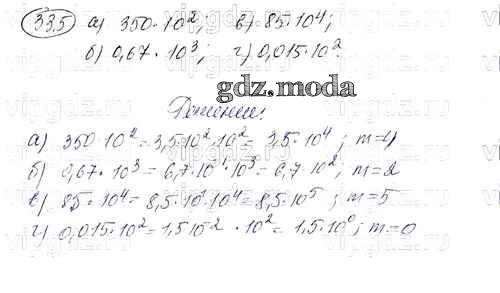 335 а) 350·10²; в) 85·10⁴;
б) 0,67·10³; г) 0,015·10².
gdz.moda
Решение:
а) 350·10² = 3,5·10²·10² = 3,5·10⁴; m=4
б) 0,67·10³ = 6,7·10⁻¹·10³ = 6,7·10²; m=2
в) 85·10⁴ = 8,5·10¹·10⁴ = 8,5·10⁵; m=5
г) 0,015·10² = 1,5·10⁻²·10² = 1,5·10⁰; m=0